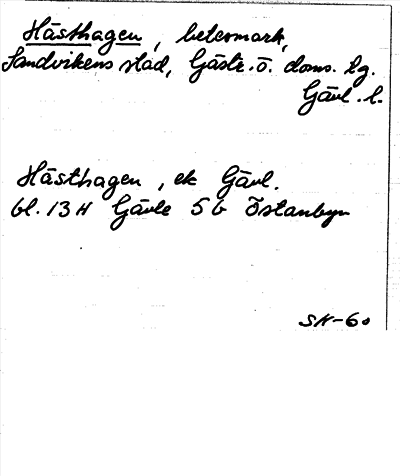 Hästhagen, betesmark,
Sandvikens stad, Gästr. ö. doms. lg.
Gävl. l.
Hästhagen, ek Gävl.
bl. 13 H Gävle 5 b Östanbyn
SH-60